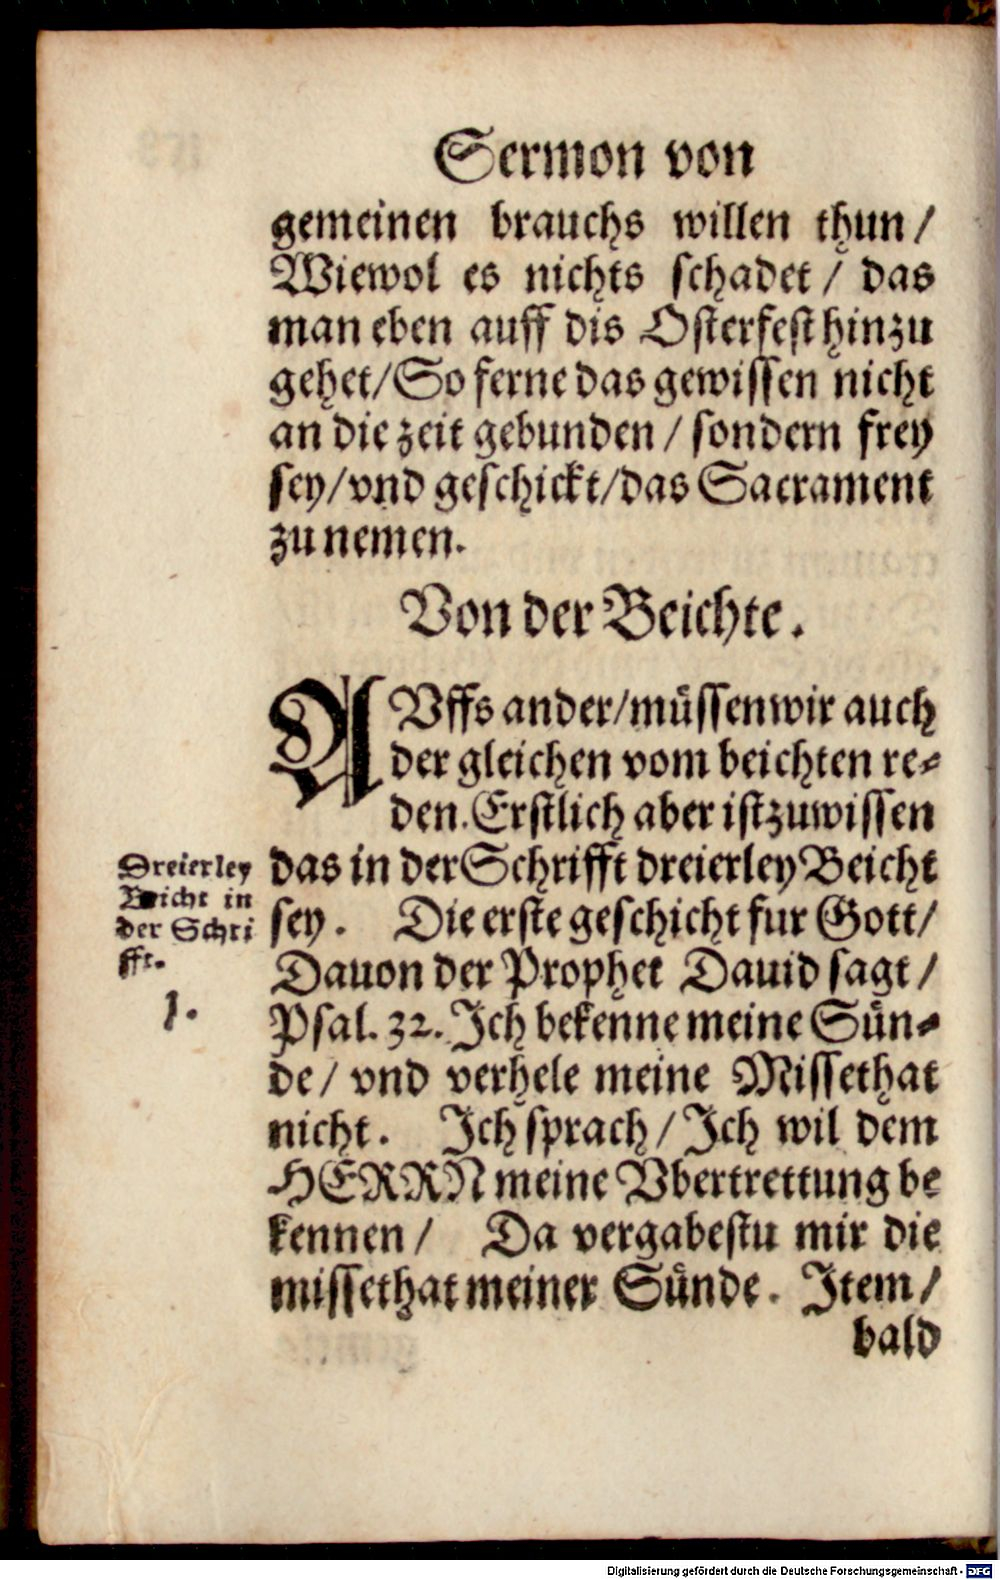 Sermon von
gemeinen brauchs willen thun /
Wiewol es nichts schadet / das
man eben auff dis Osterfest hinzu
gehet / So ferne das gewissen nicht
an die zeit gebunden / sondern frey
sey / vnd geschickt / das Sacrament
zu nemen.
Von der Beichte.
AVffs ander / müssen wir auch
der gleichen vom beichten re-
den. Erstlich aber ist zuwissen
das in der Schrifft dreierley Beicht
sey. Die erste geschicht fur Gott /
Dauon der Prophet Dauid sagt /
Psal. 32. Ich bekenne meine Sün-
de / vnd verhele meine Missethat
nicht. Ich sprach / Ich wil dem
HERRN meine Vbertrettung be
kennen / Da vergabestu mir die
missethat meiner Sünde. Item /
bald
Dreierley
Beicht in
der Schri
fft.
1.
Digitalisierung gefördert durch die Deutsche Forschungsgemeinschaft - DFG